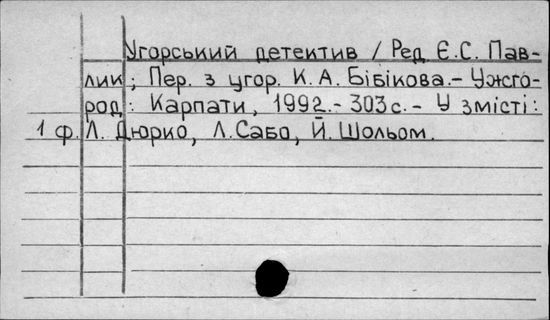 Угорський детектив / Ред Є.С. Пав-
лик; Пер. з угор. К.А. Бібікова.- Ужго-
род: Карпати, 1992.- 303 с.- У змісті:
1 ф. Л. Дюрко, Л. Сабо, Й. Шольом.